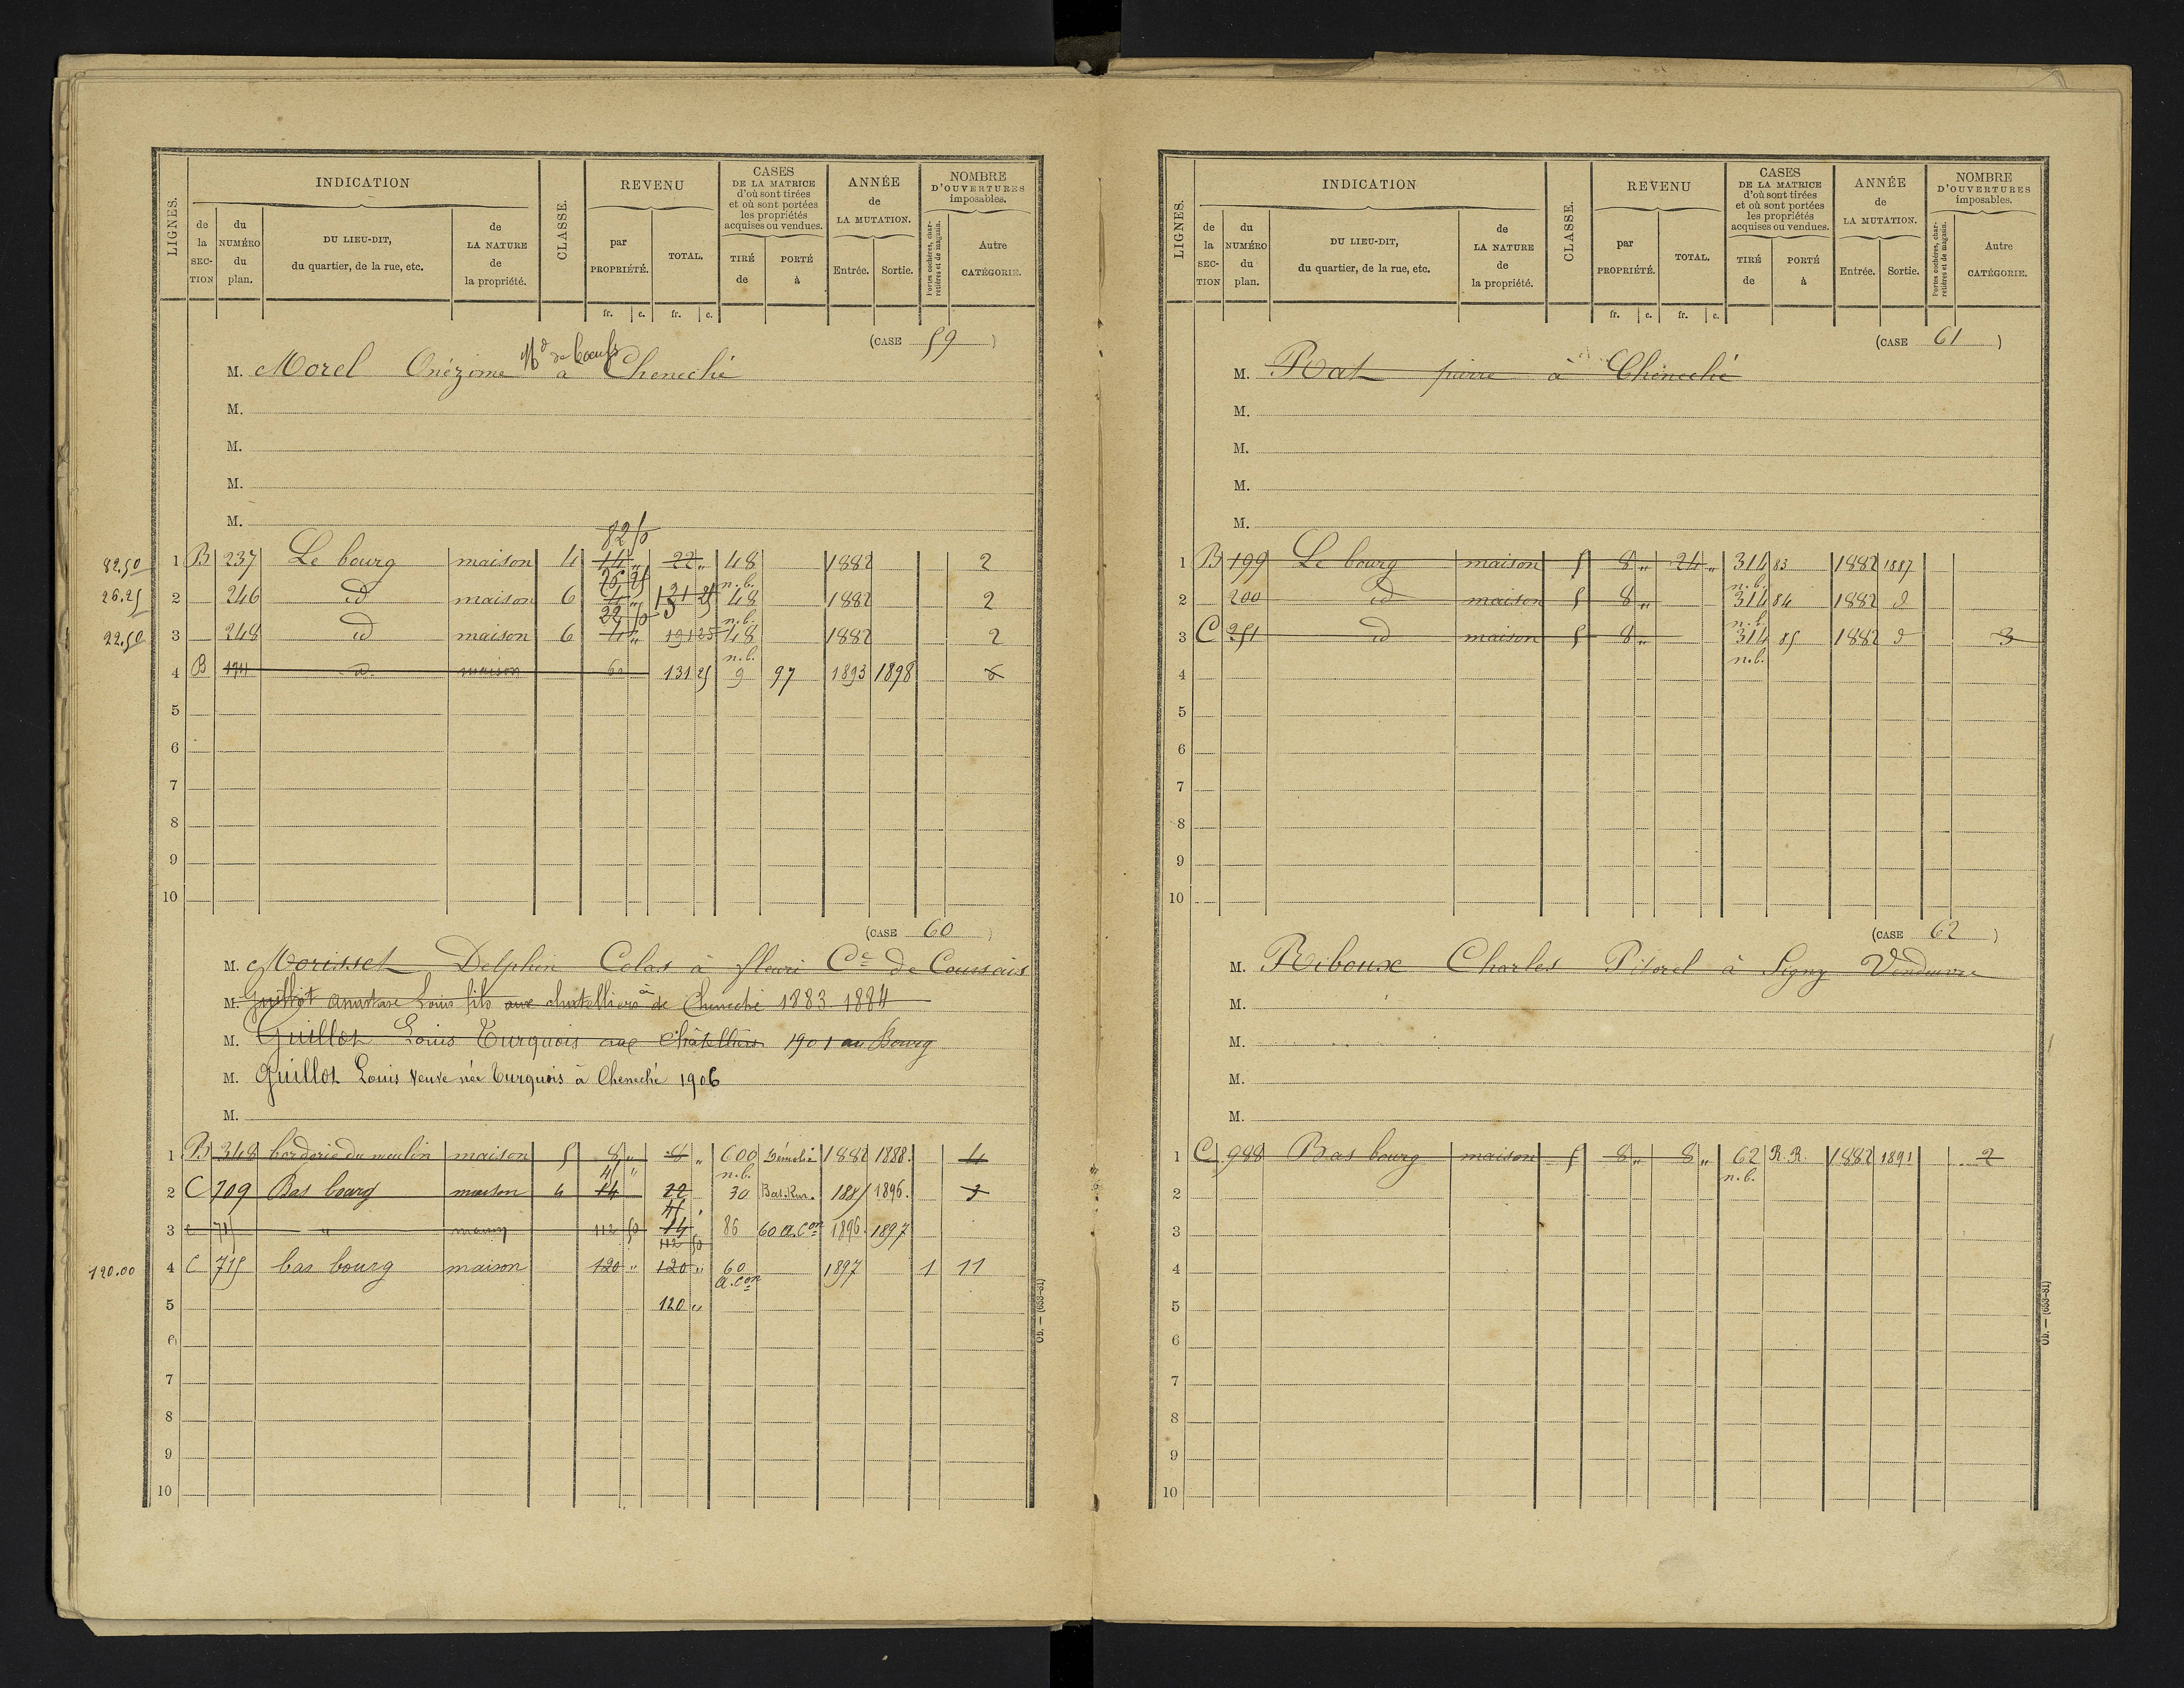 LIGNES.
INDICATION
de la SECTION
du NUMÉRO du plan.
DU LIEU-DIT, du quartier, de la rue, etc.
de LA NATURE de la propriété.
CLASSE.
REVENU
par PROPRIÉTÉ.
TOTAL.
fr. c. fr. c.
CASES DE LA MATRICE d'où sont tirées et où sont portées les propriétés acquises ou vendues.
TIRÉ de
PORTÉ à
ANNÉE de LA MUTATION.
Entrée. Sortie.
NOMBRE D'OUVERTURES imposables.
Portes cochères, charretières et de magasin.
Autre CATÉGORIE.
(CASE 59)
M. Morel Onézime Md de boeufs à Cheneché
M.
M.
M.
M.
82 50
82.50 1 B 237 Le bourg maison 4 14 " 22 " 48 1882 2
26 25 n.b.
26.25 2 246 id maison 6 4 " 131 25 48 1882 2
22 50 n.b.
22.50 3 248 id maison 6 4 " 191 25 48 1882 2
n.b.
4 B 174 d. maison 60 131 25 9 97 1893 1898 6
5
6
7
8
9
10
(CASE 60)
M. Morisset Delphin Colas à fleuri Cne de Coussais
M. Guillot anastase Louis fils aux chatelliers à de Cheneché 1883. 1884
M. Guillot Louis Turquois aux Châtelliers 1901 au Bourg
M. Guillot Louis Veuve née Turquois à Cheneché 1906
M.
1 B 348 borderie du moulin maison 5 8 " 8 " 600 Démolie 1882 1888. 4
45 " n.b.
2 C 709 Bas bourg maison 4 14 22 30 Bat. Rur. 1885 1896. 3
45 "
3 C 715 " maison 112 50 14 86 60 a. Con 1896. 1897
112 50
120.00 4 C 715 bas bourg maison 120 " 120 " 60 1897 1 11
a. Con
5 120 "
6
7
8
9
10
Ob. — (653-81)
LIGNES.
INDICATION
de la SECTION
du NUMÉRO du plan.
DU LIEU-DIT, du quartier, de la rue, etc.
de LA NATURE de la propriété.
CLASSE.
REVENU
par PROPRIÉTÉ.
TOTAL.
fr. c. fr. c.
CASES DE LA MATRICE d'où sont tirées et où sont portées les propriétés acquises ou vendues.
TIRÉ de
PORTÉ à
ANNÉE de LA MUTATION.
Entrée. Sortie.
NOMBRE D'OUVERTURES imposables.
Portes cochères, charretières et de magasin.
Autre CATÉGORIE.
(CASE 61)
M. Rat pierre à Cheneché
M.
M.
M.
M.
1 B 199 Le bourg maison 5 8 " 24 " 314 83 1882 1887
n.b.
2 200 id maison 5 8 " 314 84 1882 d
n.b.
3 C 251 id maison 5 8 " 314 85 1882 d 3
n.b.
4
5
6
7
8
9
10
(CASE 62)
M. Riboux Charles Pitorel à Signy Vendeuvre
M.
M.
M.
M.
1 C 988 Bas bourg maison 5 8 " 8 " 62 R.R. 1882 1891 2
n.b.
2
3
4
5
6
7
8
9
10
Ob. — (653-81)